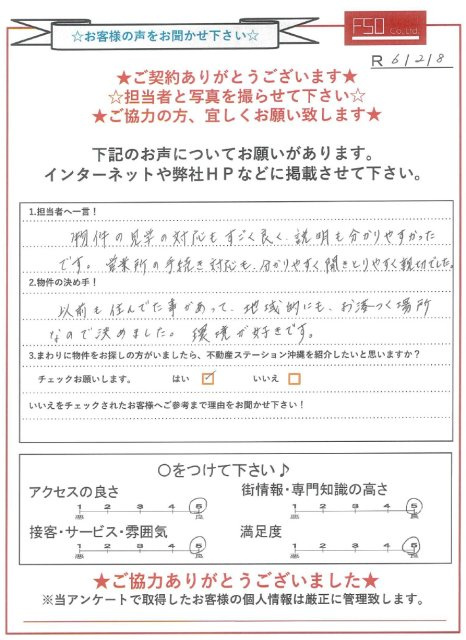 ☆お客様の声をお聞かせ下さい☆
FSO Co.,Ltd.
R 6/2/8
★ご契約ありがとうございます★
☆担当者と写真を撮らせて下さい☆
★ご協力の方、宜しくお願い致します★
下記のお声についてお願いがあります。
インターネットや弊社HPなどに掲載させて下さい。
1.担当者へ一言！
物件の見学の対応もすごく良く、説明も分かりやすかった
です。営業所の手続き対応も、分かりやすく聞きとりやすく親切でした。
2.物件の決め手！
以前も住んでた事があって、地域的にも、お落つく場所
なので決めました。環境が好きです。
3.まわりに物件をお探しの方がいましたら、不動産ステーション沖縄を紹介したいと思いますか？
チェックお願いします。 はい ☑ いいえ □
いいえをチェックされたお客様へご参考まで理由をお聞かせ下さい！
〇をつけて下さい♪
アクセスの良さ 街情報・専門知識の高さ
1 2 3 4 5 1 2 3 4 5
悪 良 悪 良
接客・サービス・雰囲気 満足度
1 2 3 4 5 1 2 3 4 5
悪 良 悪 良
★ご協力ありがとうございました★
※当アンケートで取得したお客様の個人情報は厳正に管理致します。